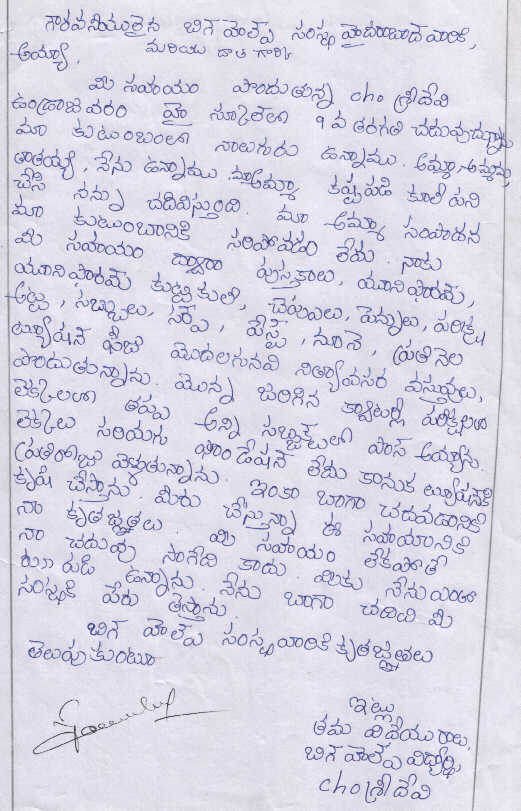 గౌరవనీయులైన బిగ్ హెల్ప్ సంస్థ హైదరాబాద్ వారికి,
అయ్యా, మరియు దాత గార్కి
మీ సహాయం పొందుతున్న cho శ్రీదేవి
ఉండ్రాజవరం హై స్కూల్‌లో 9వ తరగతి చదువుచున్నాను
మా కుటుంబంలో నాలుగురు ఉన్నాము. అమ్మా, అమ్మమ్మ
తాతయ్య, నేను ఉన్నాము. మా అమ్మా కష్టపడి కూలి పని
చేసి నన్ను చదివిస్తుంది. మా అమ్మా సంపాదన
మా కుటుంబానికి సరిపోవడం లేదు. నాకు
మీ సహాయం ద్వారా పుస్తకాలు, యూనిఫారమ్,
యూనిఫారమ్ కుట్టుకులి, చెప్పులు, పెన్నులు, పరీక్ష
అట్ట, సబ్బులు, సర్ఫ్, పేస్ట్, నూనె, ప్రతినెల
ట్యూషన్ ఫీజు మొదలగునవి నిత్యావసర వస్తువులు,
పొందుతున్నాను. మొన్న జరిగిన క్వాటర్లీ పరీక్షలలో
లెక్కలలో తప్ప అన్ని సబ్జెక్టులలో పాస్ అయ్యాను.
లెక్కలు సరియగు ఫౌండేషన్ లేదు కానుక ట్యూషన్‌కి
ప్రతిరోజు వెళ్ళుతున్నాను. ఇంకా బాగా చదువడానికి
కృషి చేస్తాను. మీరు చేస్తున్నా ఈ సహాయానికి
నా కృతజ్ఞతలు మీ సహాయం లేకపోతే
నా చదువు సాగేది కాదు. మీకు నేను ఎంతో
రుణపడి ఉన్నాను. నేను బాగా చదివి మీ
సంస్థకి పేరు తెస్తాను.
బిగ్ హెల్ప్ సంస్థ వారికి కృతజ్ఞతలు
తెలుపుకుంటూ
ఇట్లు
తమ విదేయురాలు,
బిగ్ హెల్ప్ విద్యార్థి,
cho శ్రీదేవి